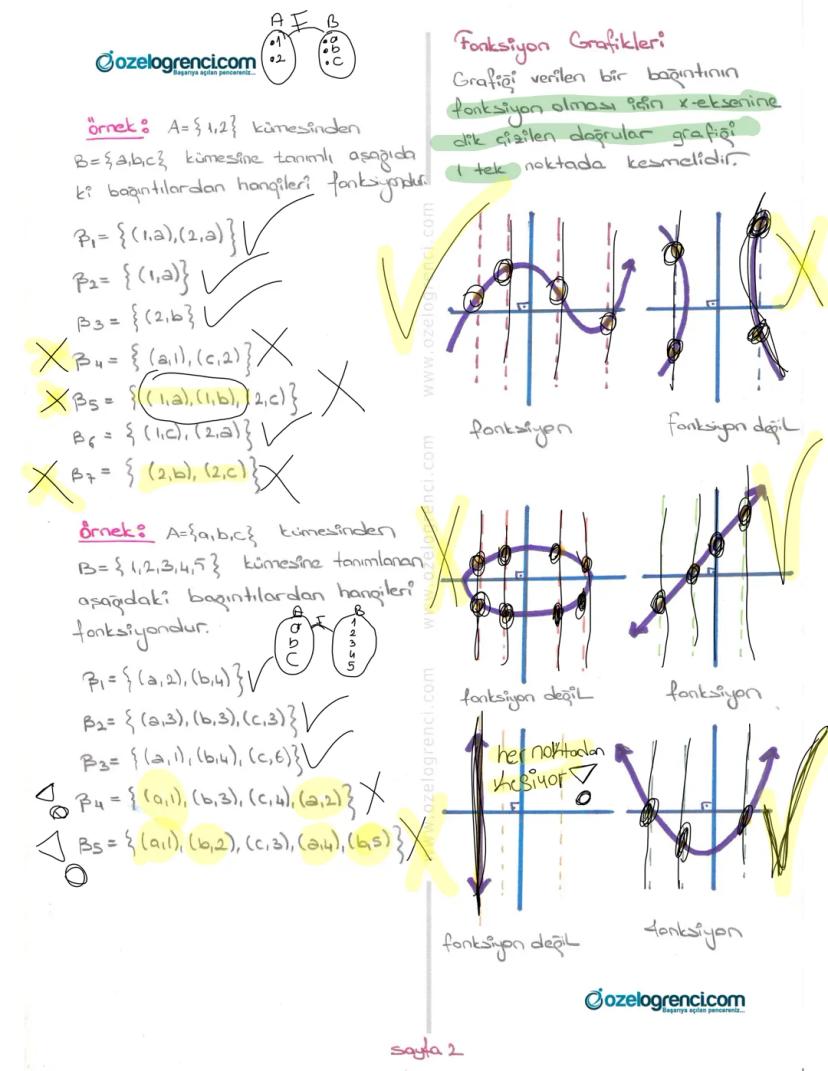 A f B
.1 .a
.2 .b
.c
ozelogrenci.com
Başarıya açılan pencereniz...
örnek: A={1,2} kümesinden
B={a,b,c} kümesine tanımlı aşağıda
ki bağıntılardan hangileri fonksiyondur.
β₁ = {(1,a),(2,a)}
β₂ = {(1,a)}
β₃ = {(2,b)}
β₄ = {(a,1),(c,2)}
β₅ = {(1,a),(1,b),(2,c)}
β₆ = {(1,c),(2,a)}
β₇ = {(2,b),(2,c)}
örnek: A={a,b,c} kümesinden
B={1,2,3,4,5} kümesine tanımlanan
aşağıdaki bağıntılardan hangileri
fonksiyondur.
A f B
a 1
b 2
c 3
4
5
β₁ = {(a,2),(b,4)}
β₂ = {(a,3),(b,3),(c,3)}
β₃ = {(a,1),(b,4),(c,6)}
β₄ = {(a,1),(b,3),(c,4),(a,2)}
β₅ = {(a,1),(b,2),(c,3),(a,4),(b,5)}
www.ozelogrenci.com
www.ozelogrenci.com
www.ozelogrenci.com
Fonksiyon Grafikleri
Grafiği verilen bir bağıntının
fonksiyon olması için x-eksenine
dik çizilen doğrular grafiği
1 tek noktada kesmelidir.
fonksiyon
fonksiyon değil
fonksiyon değil
fonksiyon
her noktadan
kesiyor
fonksiyon değil
fonksiyon
ozelogrenci.com
Başarıya açılan pencereniz...
sayfa 2